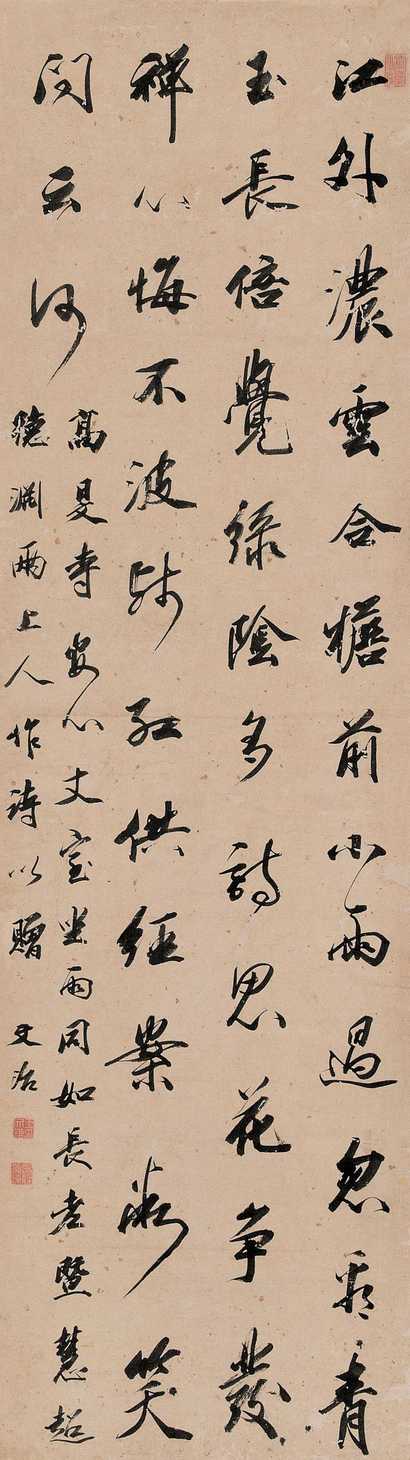 江外濃雲合檐前小雨過忽看青
玉長倍覺綠陰多詩思花爭發
禪心海不波紅供經案微笑
問云何
高旻寺安心丈室坐雨同如長老暨慧超
聽瀾兩上人作詩以贈 文治